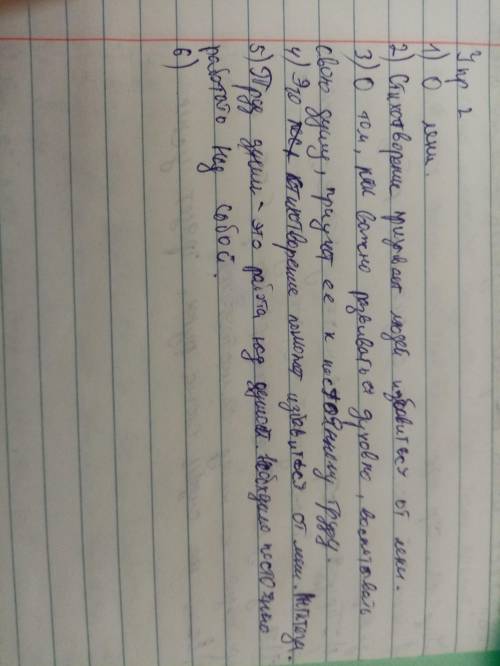 Упр 2
1) О лени.
2) Стихотворение призывает людей избавиться от лени.
3) О том, как важно развиваться духовно, воспитовать
свою душу, приучает ее к постоянному труду.
4) Это стихотворение помогает избавиться от лени. Антитеза.
5) Труд души - это работа над душой. Необходимо постоянно
работать над собой.
6)